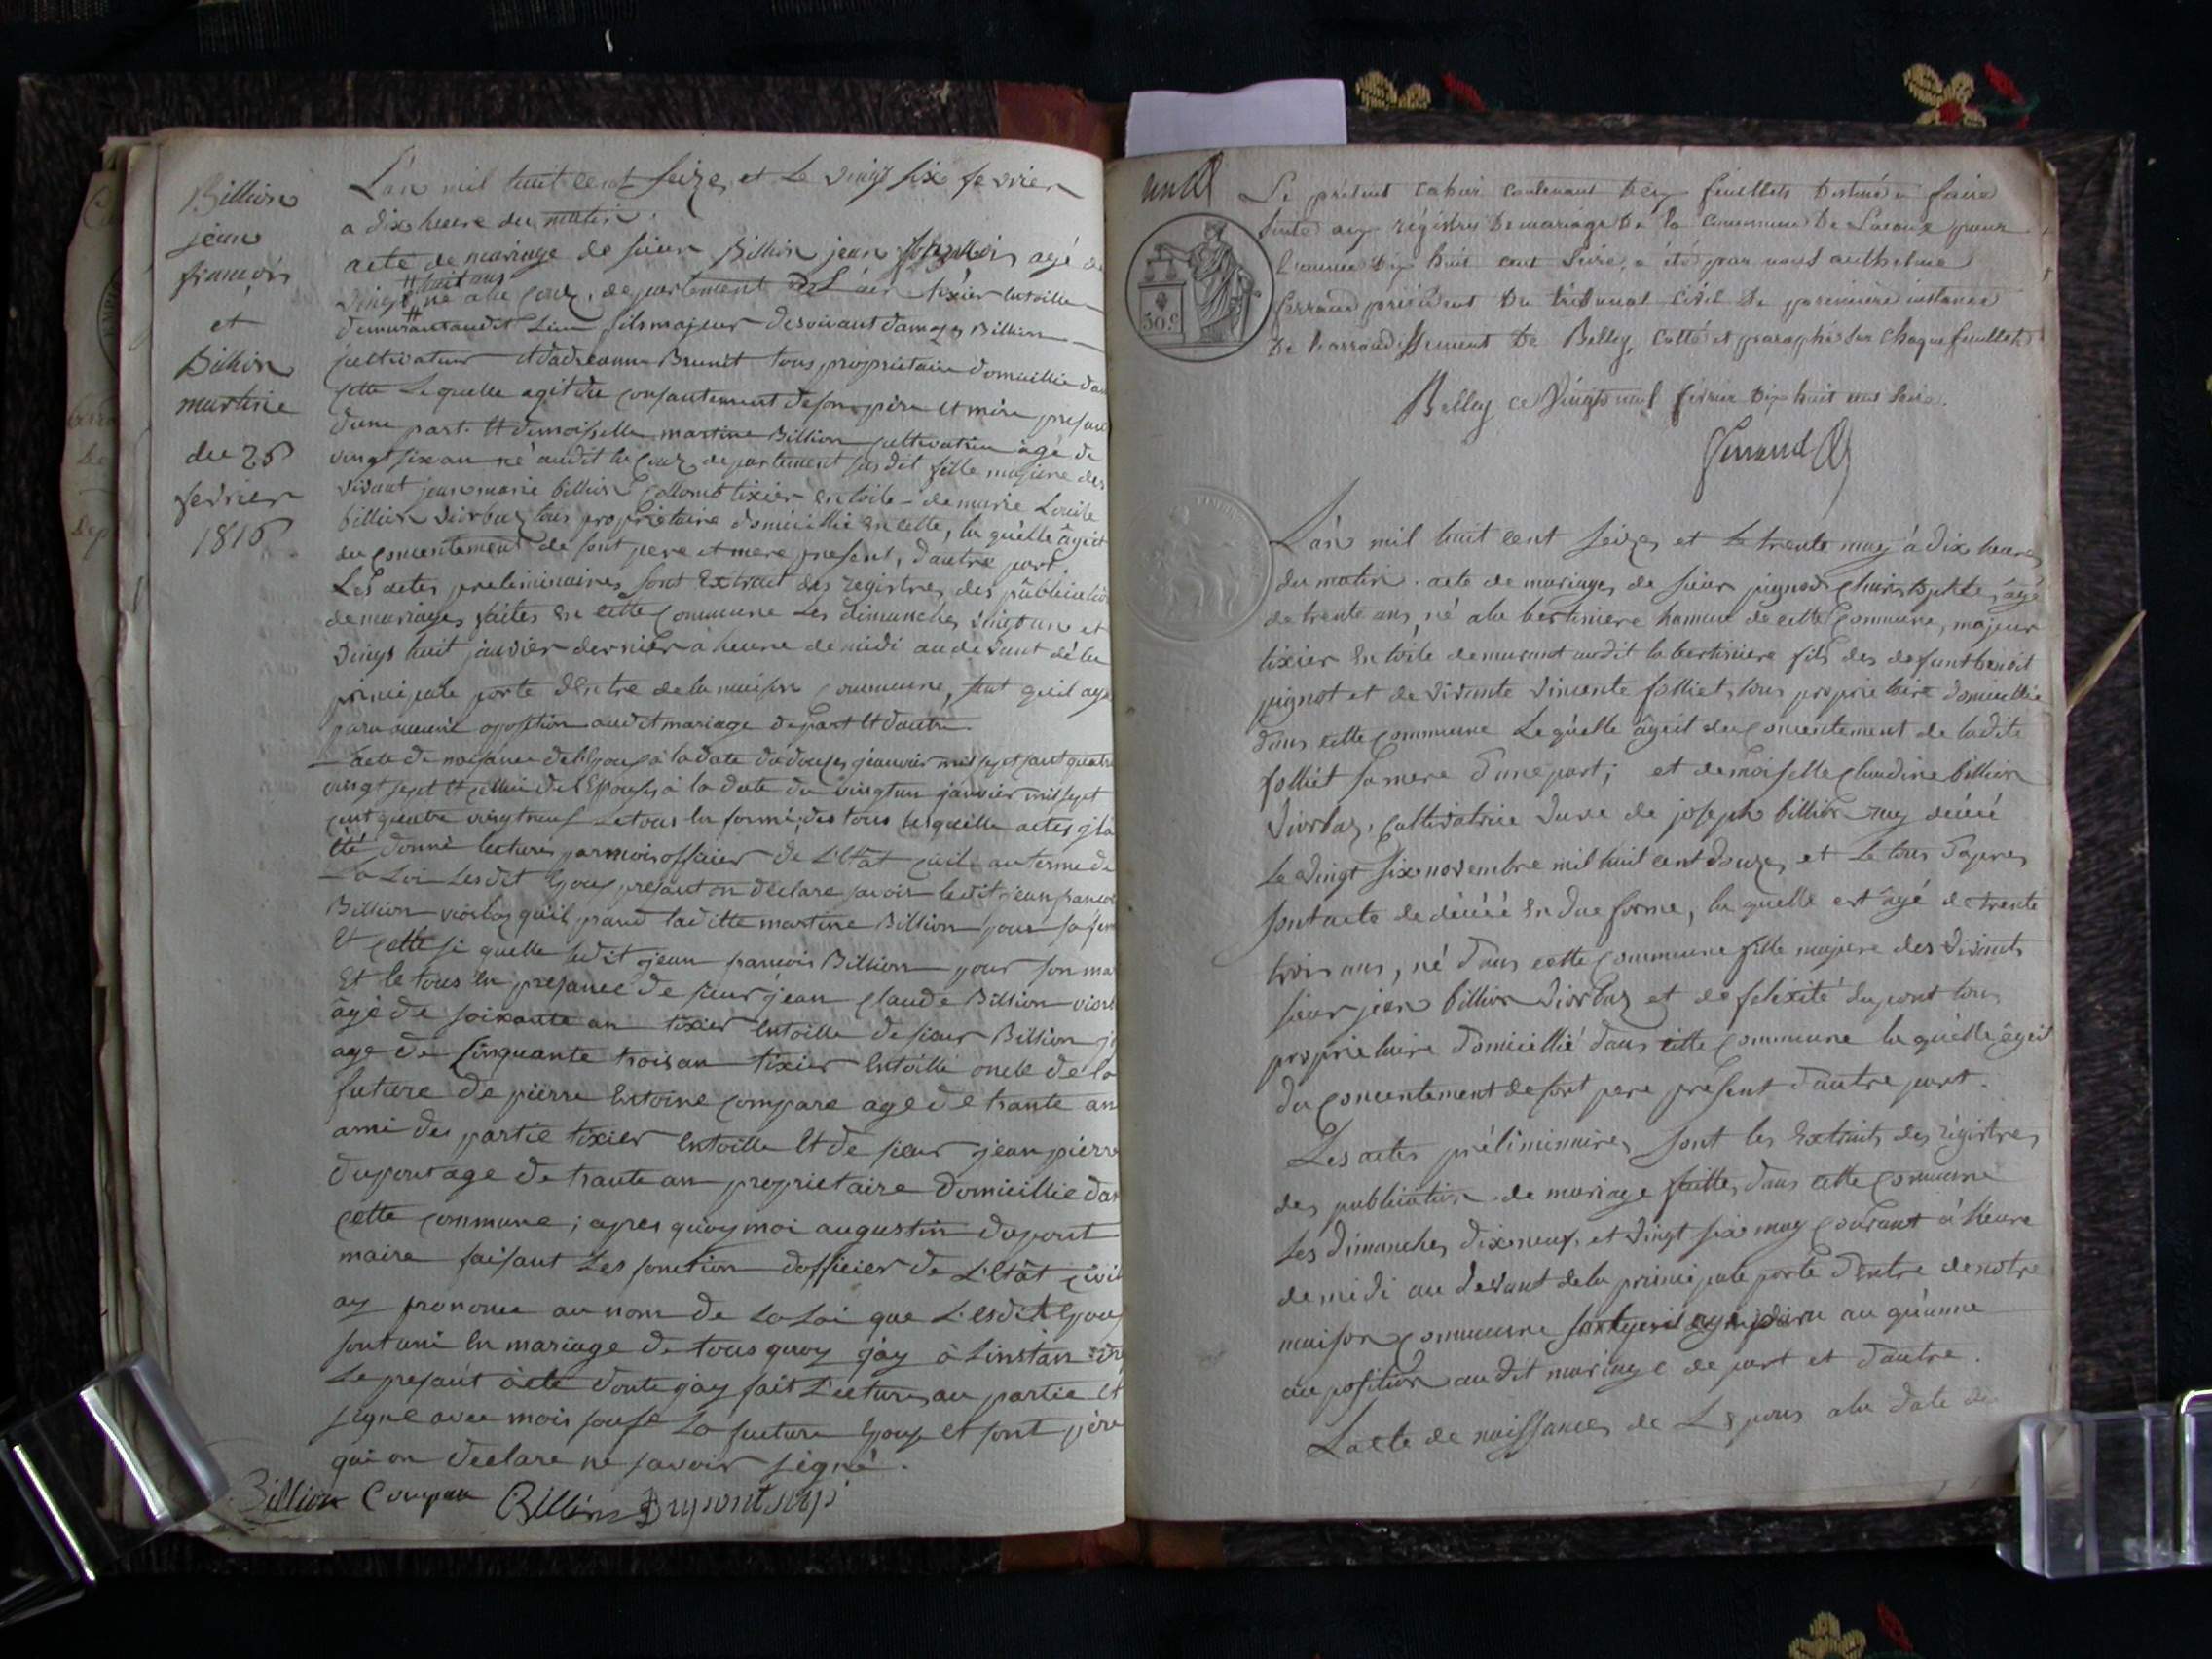 Billion
jean
françois
et
Billion
martine
du 26
fevrier
1816
L'an mil huit cent seize, et Le vingt six fevrier
a dix heure du matin.
acte de mariage de sieur Billion jean françois agé de
huit ans
vingt né a département de L'ain tixier entoille
demurant audit Lieu fils majeur des vivant Billion
cultivateur et Brunet tous proprietaire domicillie dan
cette Lequelle agit du consantement de son père et mère presant
d'une part. Et demoiselle martine Billion cultivatrice âgé de
vingt six an né audit département susdit fille majeure des
vivant jean marie billion Collomb tixier en toile - de marie Louise
billion viorbaz tous proprietaire domicillié en cette, la quelle âgit
du consentement de sont pere et mere present, d'autre part.
Les actes preliminaires sont Extrait des registres des publication
de mariages faites en cette Commune Les dimanches vingt un et
vingt huit janvier dernier à heure de midi au devant de la
principale porte d'Entre de la maison commune, sant qu'il aye
paru aucune oposition audit mariage de part Et dautre.
Lacte de naisance de l'Epoux à la date du douze janvier mil sept sant quatre
vingt sept Et cellui de l'Epouse à la date du vingt un janvier mil sept
cent quatre vingt neuf Le tous en forme, des tous lesquelle actes il a
été donné lecture par mois officier de L'Etat civil au terme de
La Loi Lesdit Epoux presant on déclare savoir ledit jean francois
Billion viorbaz qu'il prand laditte martine Billion pour sa fem
Et cette si quelle ledit jean francois Billion pour son ma
Et le tous en presance de sieur jean Claude Billion viorb
âgé de soixante an tixier entoille de sieur Billion j
age de Cinquante trois an tixier entoille oncle de la
future de pierre Entoine Compare age de trante an
ami des partie tixier entoille Et de sieur jean pierre
dupont age de trante an proprietaire domicillie dan
cette commune; apres quoy moi augustin dupont
maire faisant Les fonction dofficier de L'Etât civil
ay prononce au nom de La Loi que Lesdit Epoux
sont uni en mariage de tous quoy jay à Linstan
Le presant acte donte jay fait Lecture au partie et
signe avec mois sause La future Epouse et sont père
qui on declare ne savoir signé.
Billion Compare Billion Dupont
un
Le présent cahier contenant deux feuillets destiné à faire
suite aux régistres de mariage de la commune de Lacoux pour
l'année dix huit cent seize, a été par nous anthelme
ferrand président du tribunal civil de première instance
de l'arrondissement de Belley, cotté et paraphé sur chaque feuillet
Belley ce vingt neuf février dix huit cent seize.
ferrand
50.c
L'an mil huit cent seize, et Le trente may à dix heures
du matin. acte de mariage, de sieur pignod Christophle, âgé
de trente ans, né a la bertiniere hameau de cette Commune, majeur
tixier en toile demurant audit la bertiniere fils des defunt benoit
pignot et de vivante vincente folliet, tous proprietaire domicillie
dans cette Commune Lequelle âgit du Consentement de ladite
folliet sa mere d'une part; et demoiselle Claudine billion
viorbaz, Cultivatrice vuve de joseph billion rey décéé
Le vingt six novembre mil huil cent douze, et Le tous d'apres
sont acte de décéé en due forme, la quelle est âgé de trente
trois ans, né dans cette Commune fille majeure des vivants
sieur jean billion viorbaz et de félixité dupont tous
proprietaire domicillié dans cette Commune la quelle âgit
du Consentement de sont pere present d'autre part.
Les actes préliminaires, sont les Extraits des régistres
des publication de mariage faittes dans cette Commune
Les dimanches dix neuf, et vingt six may Courant à heure
de midi au devant de la principale porte d'Entre de notre
maison commune sant qu'il aye paru au qu'une
auposition audit mariage de part et d'autre.
Lacte de naissance, de L'Epous a la date du